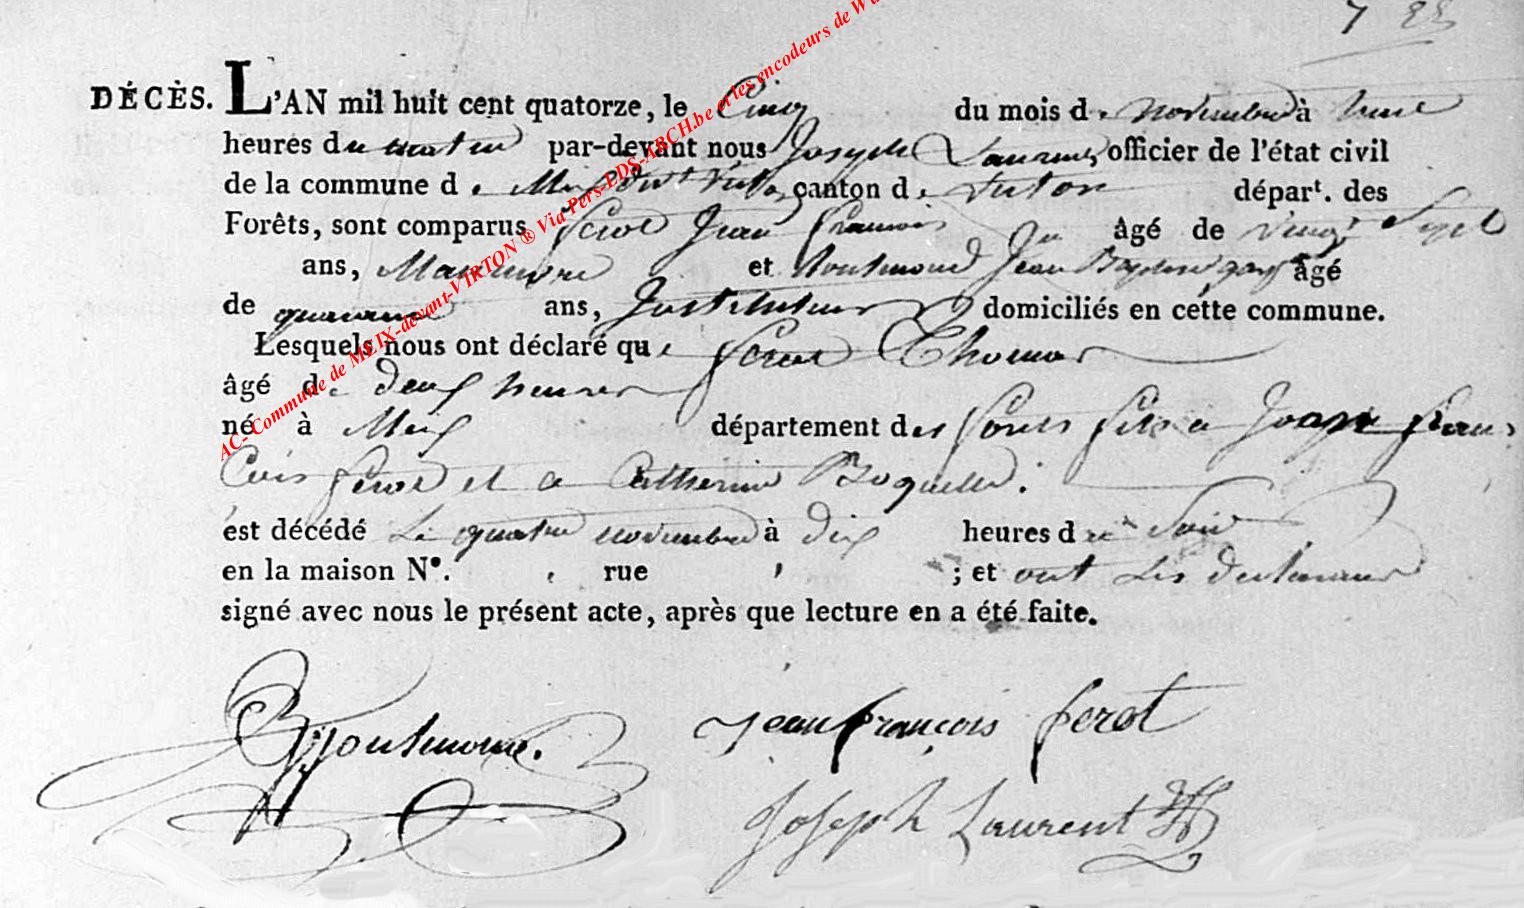 7 88
DÉCÈS. L'AN mil huit cent quatorze, le Cinq du mois de novembre à
heures du matin par-devant nous Joseph Laurent officier de l'état civil
de la commune de Meix devt Virton canton de Virtonépart. des
Forêts, sont comparus ferot Jean françois âgé de vingt Sept
ans, Maneuvre et Jean Baptiste âgé
de quarante ans, Instituteur domiciliés en cette commune.
Lesquels nous ont déclaré que ferot Thomas
âgé de deux heures
né à Meix département des forets fils a Jean fran
cois ferot et a Catherine Boquelle.
est décédé Le quatre novembre à dix heures du Soir
en la maison N°. , rue , ; et ont Les declarans
signé avec nous le présent acte, après que lecture en a été faite.
jean françois ferot
Joseph Laurent
AC- Commune de MEIX-devant-VIRTON ® Via Pers-EDS-ARCH.be et les encodeurs de